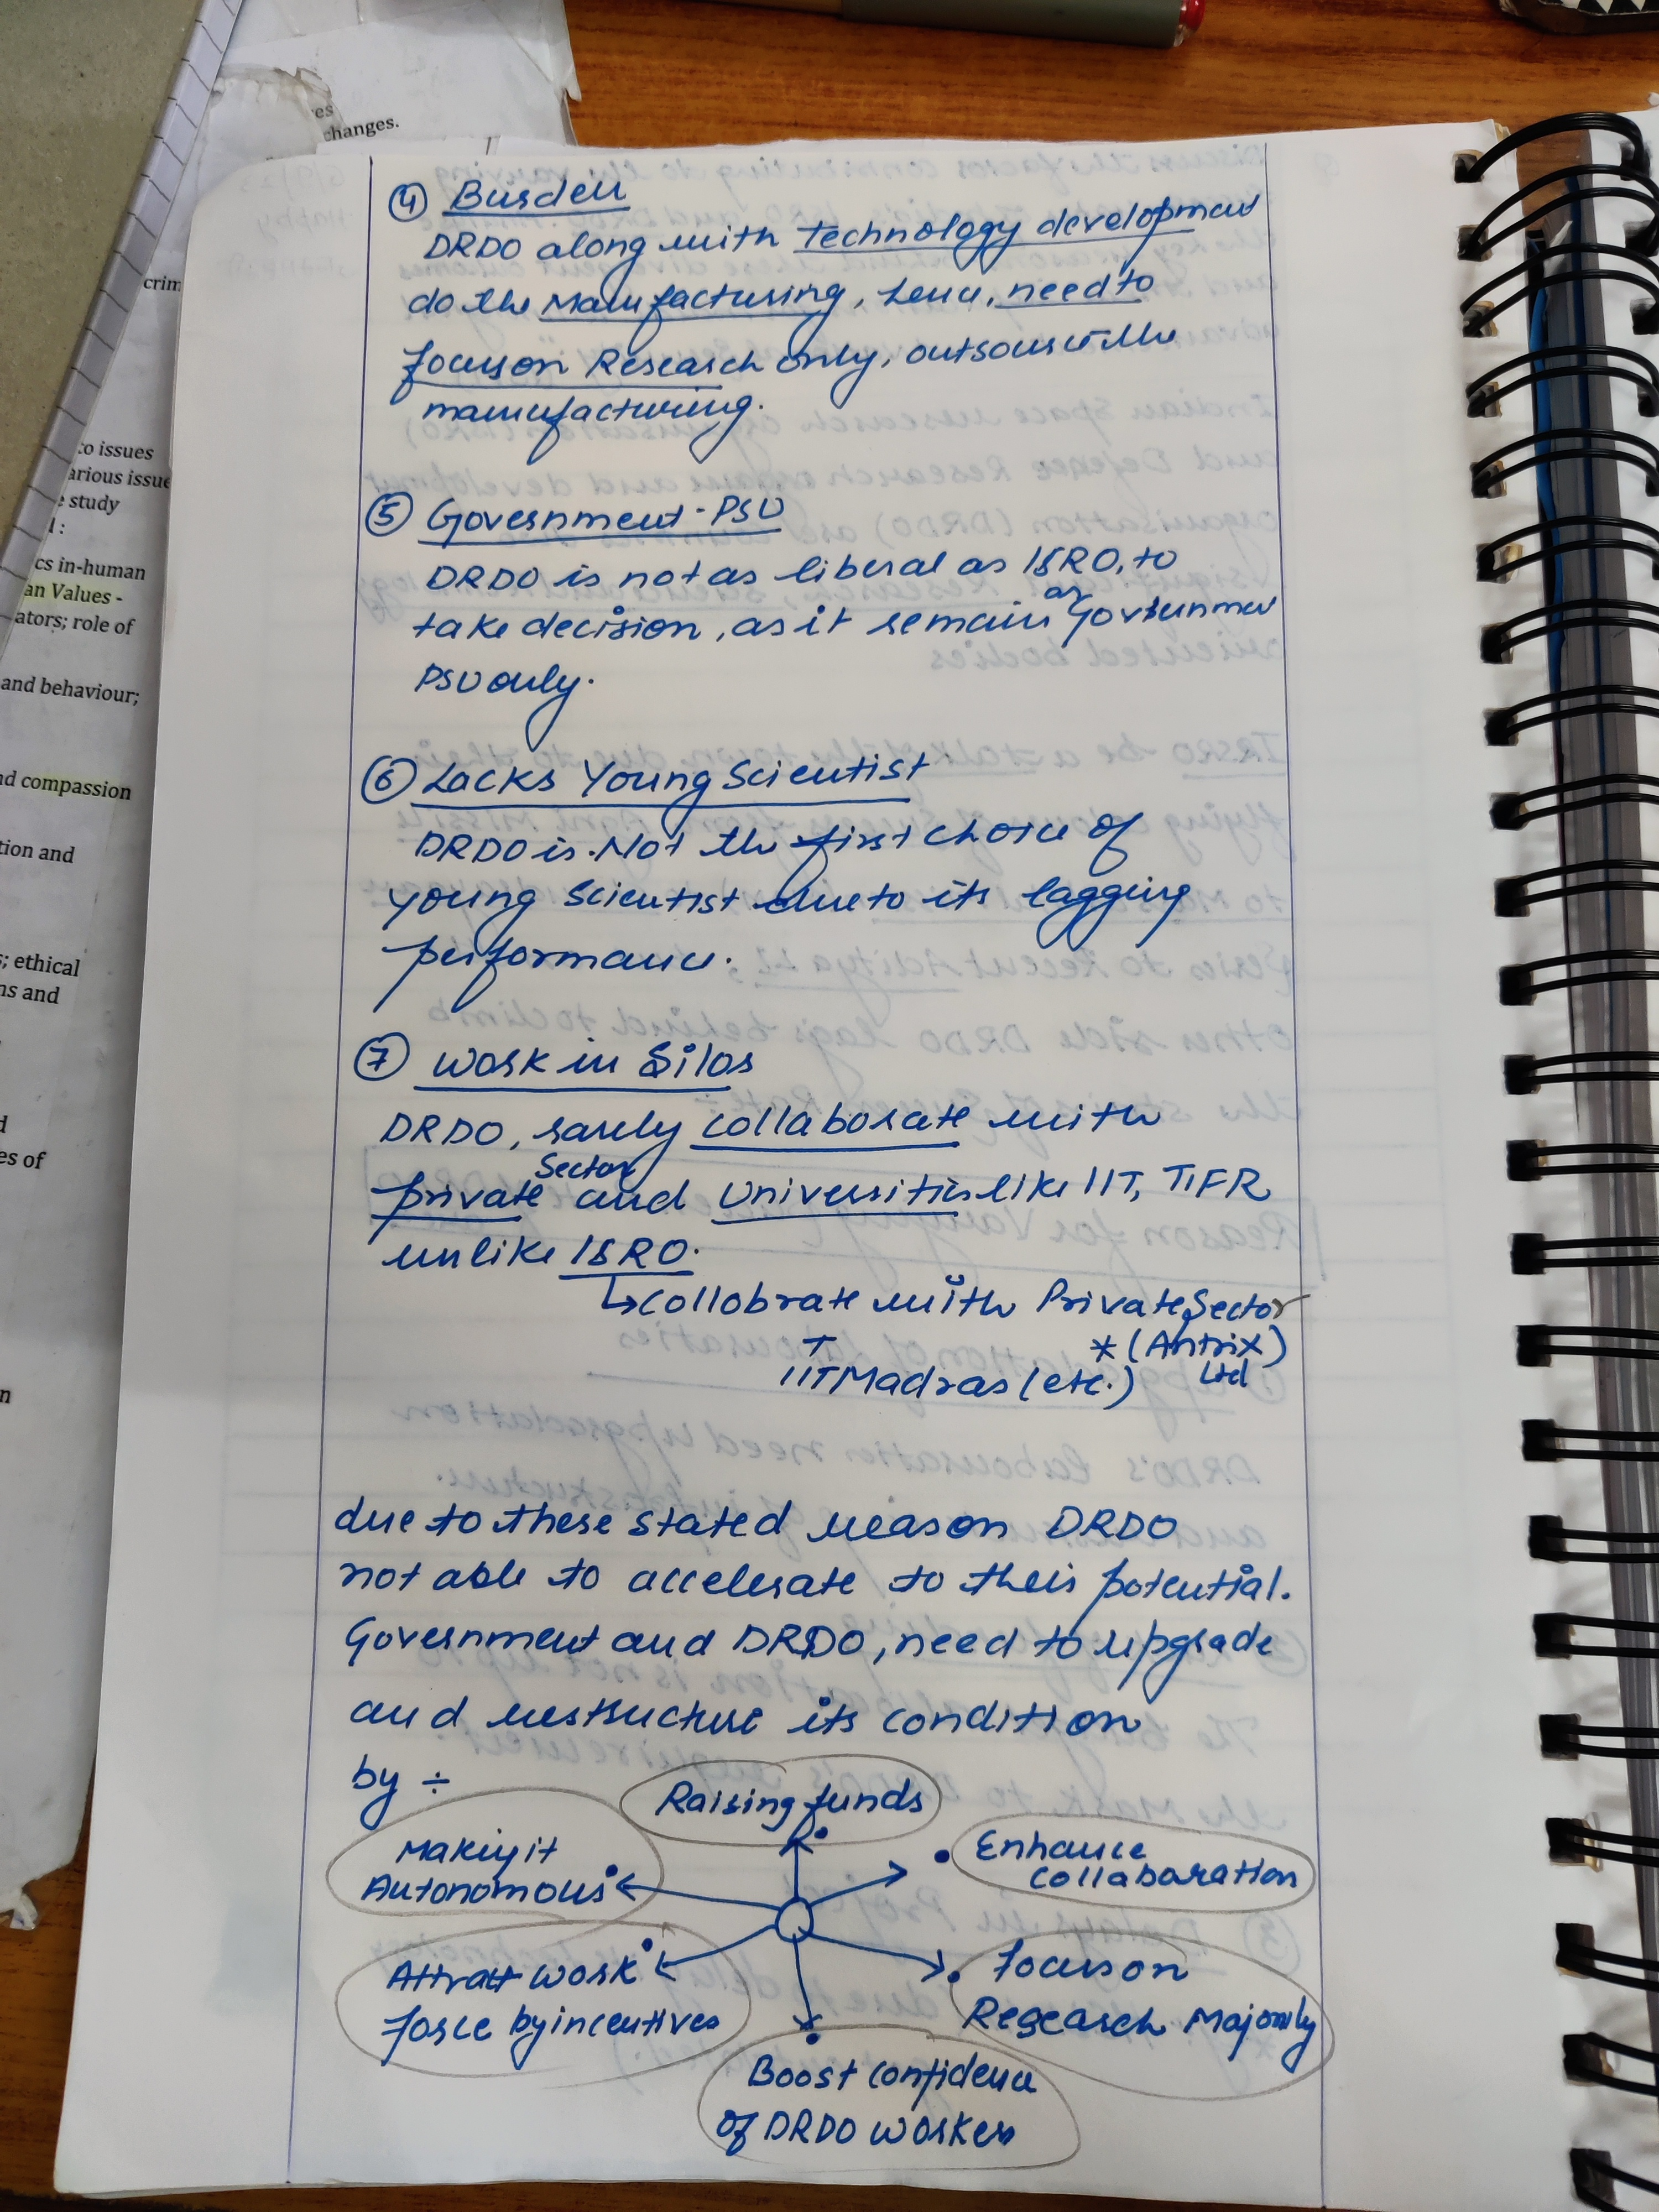 es
changes.
crim
to issues
arious issue
e study
l :
cs in-human
an Values -
ators; role of
and behaviour;
nd compassion
tion and
s; ethical
ns and
d
es of
n
④ Burden
DRDO along with technology development
do the Manufacturing, hence, need to
focus on Research only, outsource the
manufacturing.
⑤ Government - PSU
DRDO is not as liberal as ISRO, to
take decision, as it remain as Government
PSU only.
⑥ Lacks Young Scientist
DRDO is Not the first choice of
young Scientist due to its lagging
performance.
⑦ Work in Silos
DRDO, rarely collaborate with
private Sector and Universities like IIT, TIFR
unlike ISRO.
↳ collobrate with Private Sector
* (Antrix)
Ltd
IIT Madras (etc.)
due to these stated reason DRDO
not able to accelerate to their potential.
Government and DRDO, need to upgrade
and restructure its condition
by ÷
Raising funds
Making it
Autonomous
Enhance
Collabaration
Attract work
force by incentives
focus on
Research Majorly
Boost Confidence
of DRDO workers